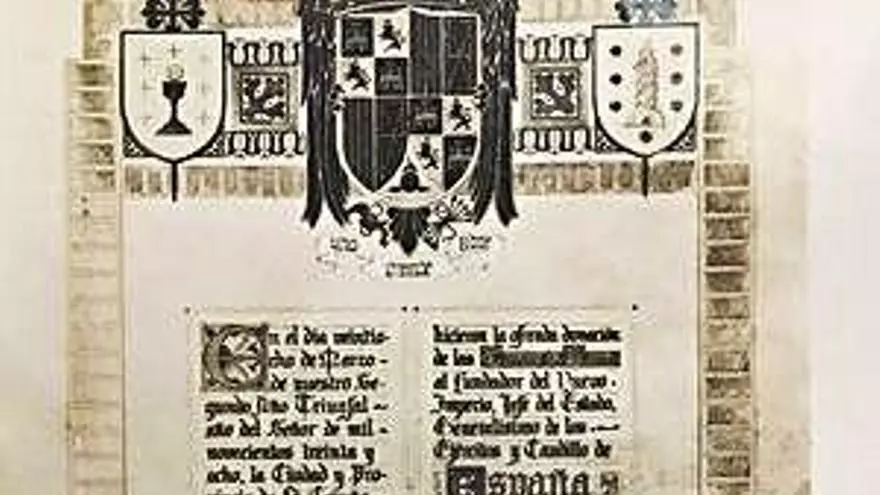 En el dia veintio-
cho de Marzo -
de nuestro Se-
gundo Año Triunfal -
año del Señor de mil -
novecientos treinta y
ocho, la Ciudad y Pro-
vincia de
hicieron la ofrenda donación
de las
al Fundador del Nuevo -
Imperio, Jefe del Estado,
Generalisimo de los -
Ejércitos y Caudillo de
ESPAÑA